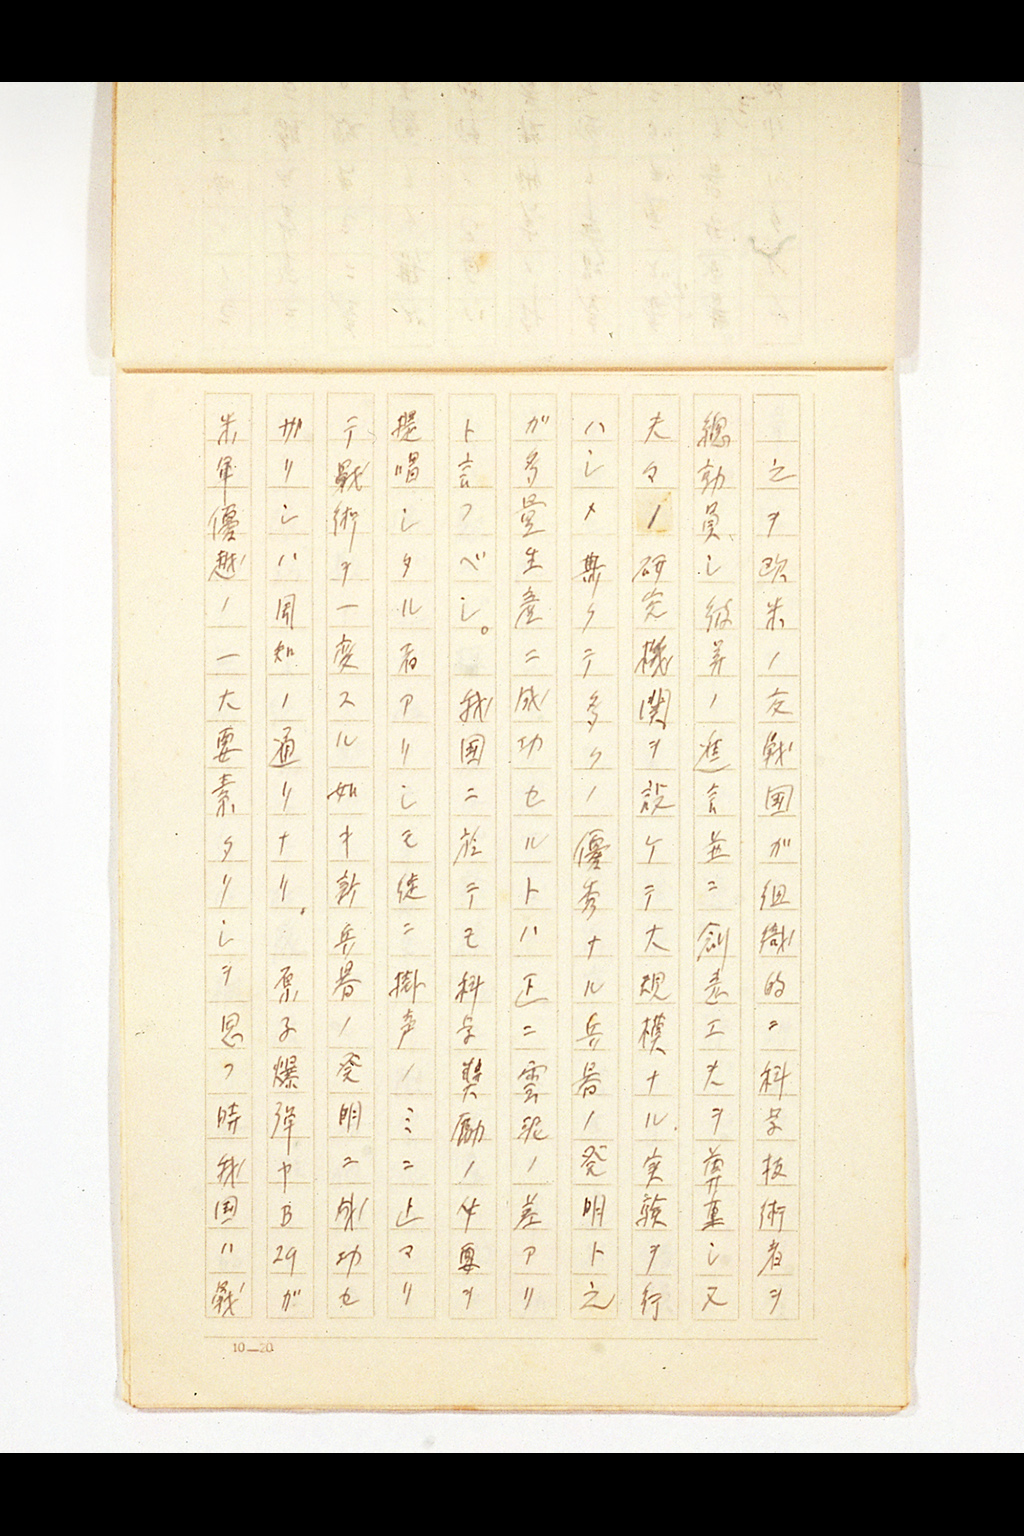 之ヲ欧米ノ交戦国ガ組織的ニ科学技術者ヲ
總動員シ彼等ノ進言並ニ創意工夫ヲ尊重シ又
夫々ノ研究機関ヲ設ケテ大規模ナル実験ヲ行
ハシメ斯クテ多クノ優秀ナル兵器ノ発明ト之
ガ多量生産ニ成功セルトハ正ニ雲泥ノ差アリ
ト言フベシ。我国ニ於テモ科学奬励ノ必要ヲ
提唱シタル者アリシモ徒ニ掛声ノミニ止マリ
テ戰術ヲ一変スル如キ新兵器ノ発明ニ成功セ
ザリシハ周知ノ通リナリ。原子爆弾ヤB29ガ
米軍優越ノ一大要素タリシヲ思フ時我国ハ戰
10—20